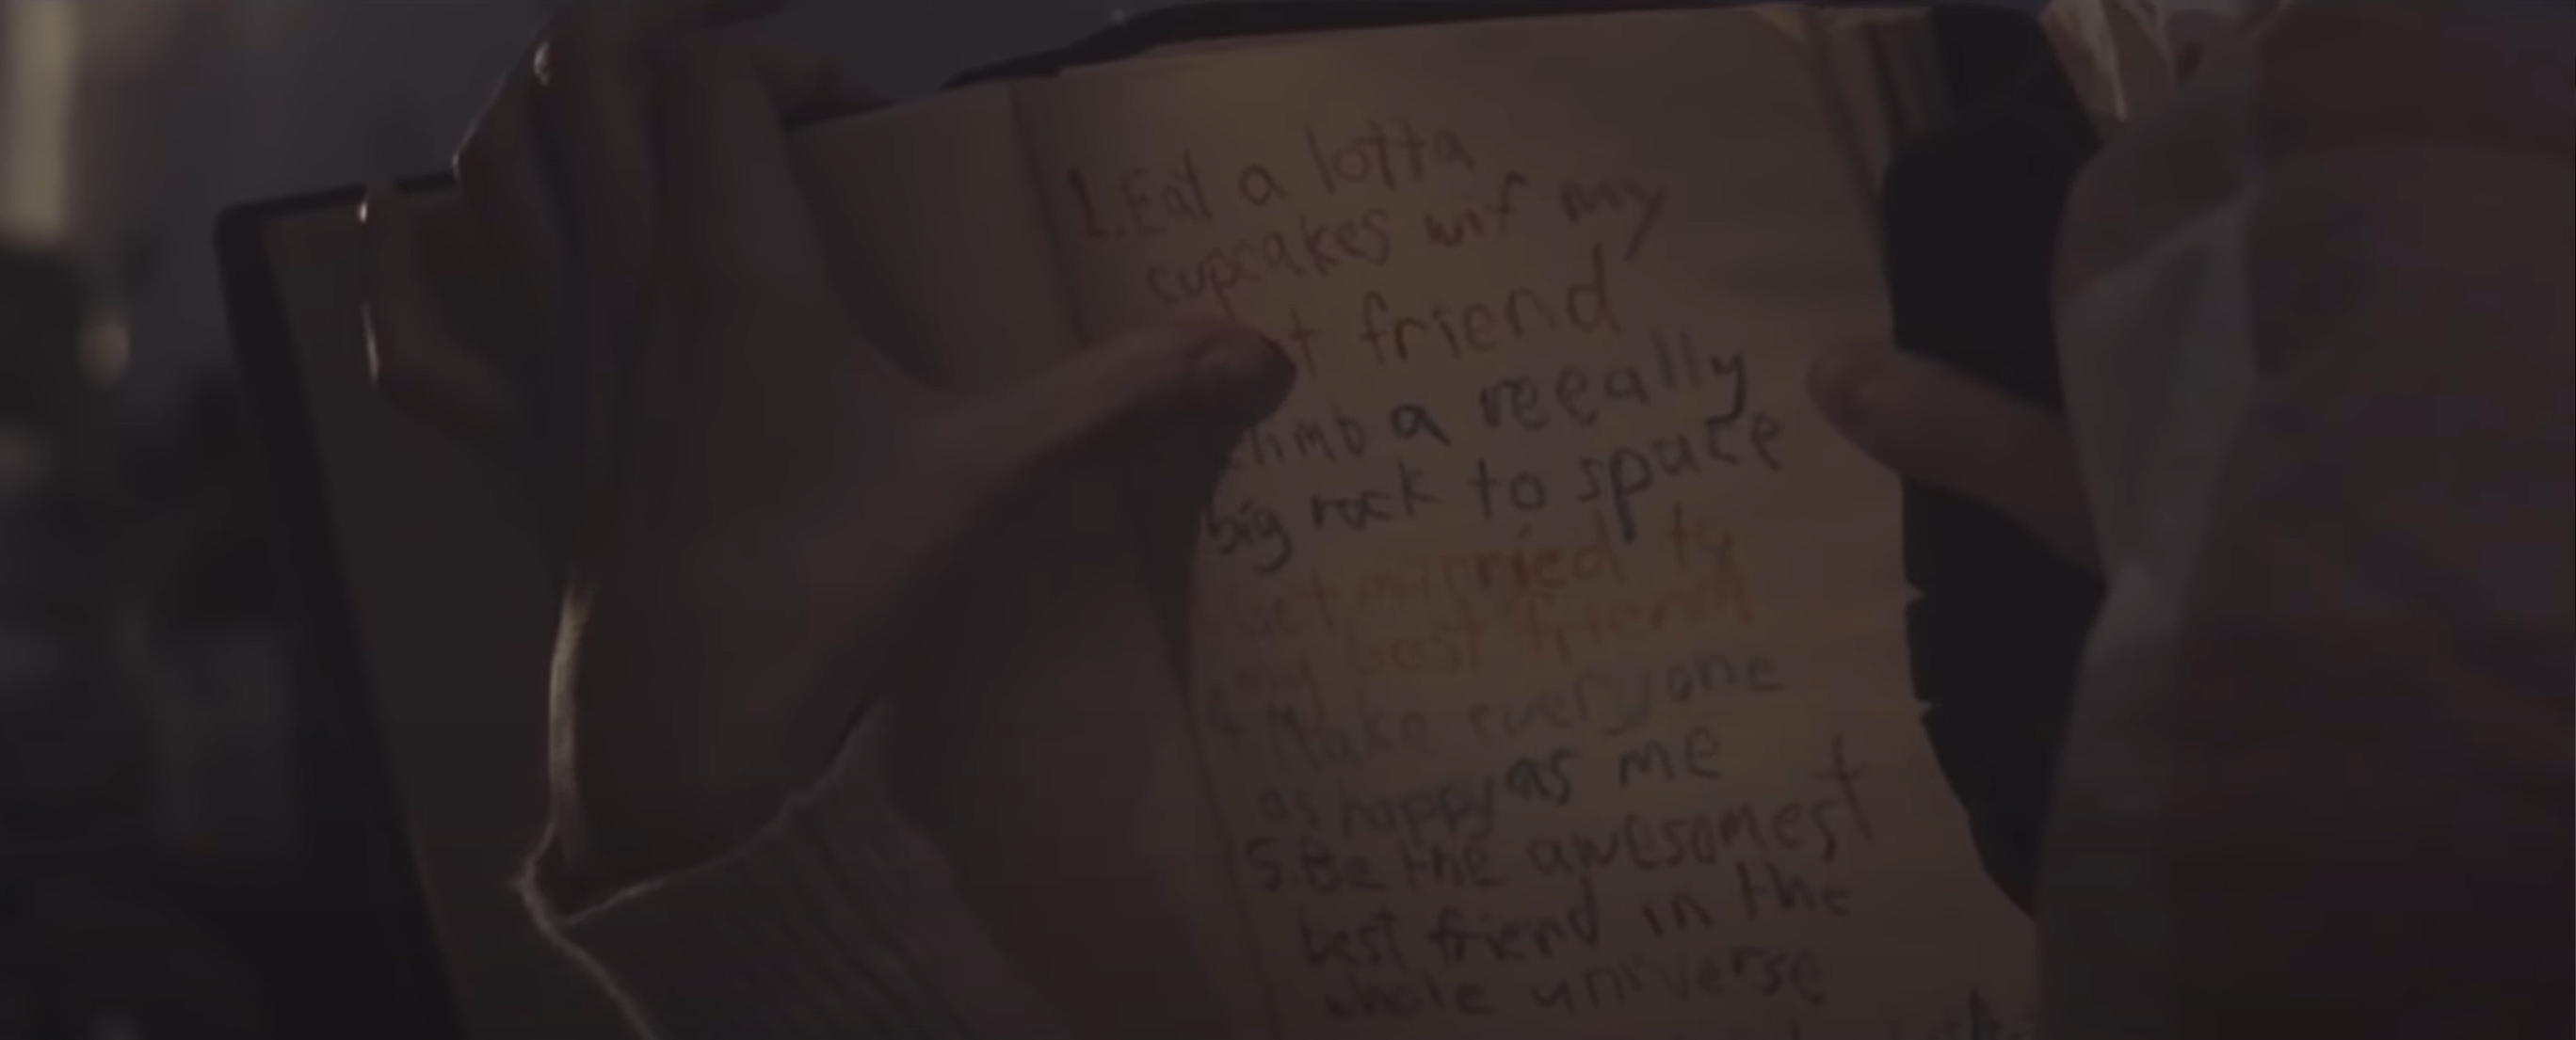 1. Eat a lotta
cupcakes wif my
t friend
climb a reeally
big rock to space
Get married to
my best friend
4. Make everyone
as happy as me
5. Be the awesomest
best friend in the
whole universe